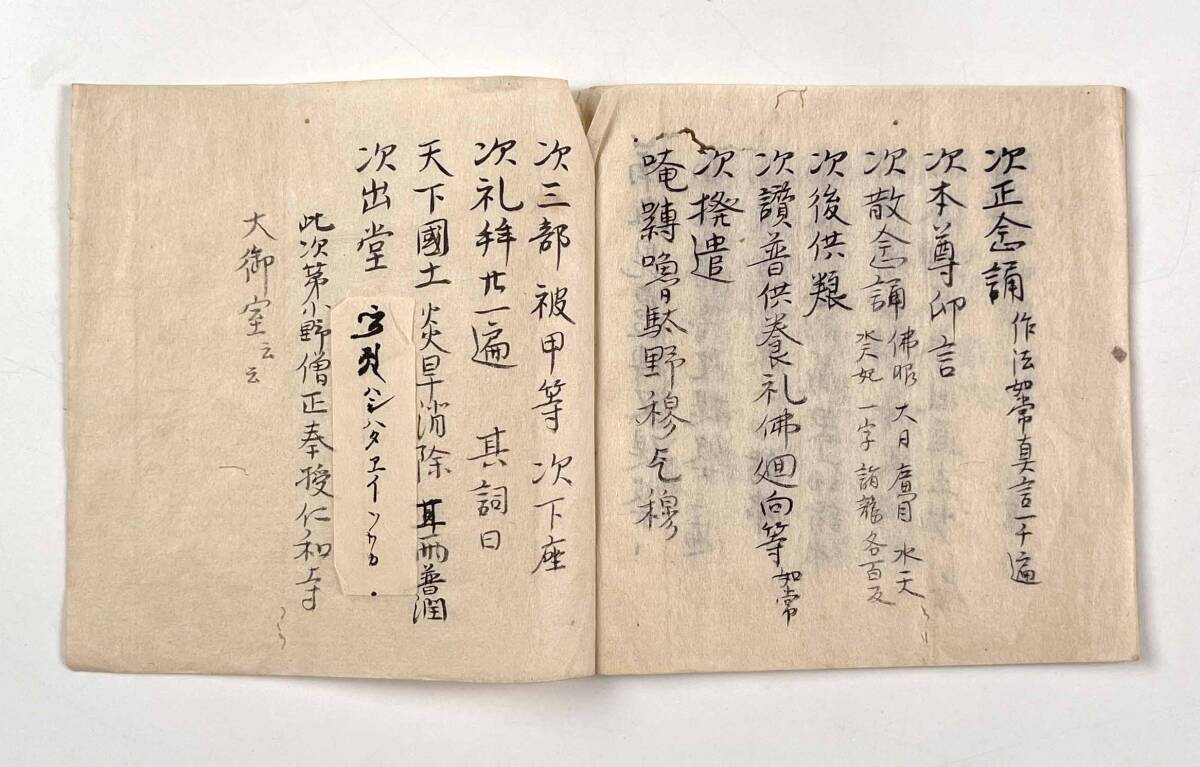 次正念誦 作法如常真言一千遍
次本尊印言
次散念誦 佛眼 大日 廣目 水天
水天妃 一字 諸龍 各百反
次後供粮
次讃普供養礼佛廻向等 如常
次撥遣
唵嚩嚕駄野穆乞穆
次三部被甲等 次下座
次礼拜廿一遍 其詞曰
天下國土 炎旱消除 甘雨普潤
次出堂
ハシハタエイソワカ
此次第小野僧正奉授仁和寺
大御室云云